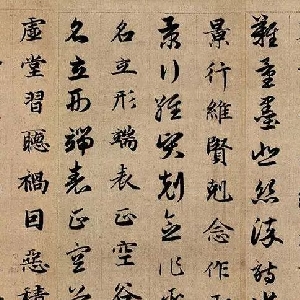 難量墨悲絲染詩
景行維賢剋念作
景行維賢剋念作
名立形端表正空谷
名立形端表正空谷
虛堂習聽禍因惡積